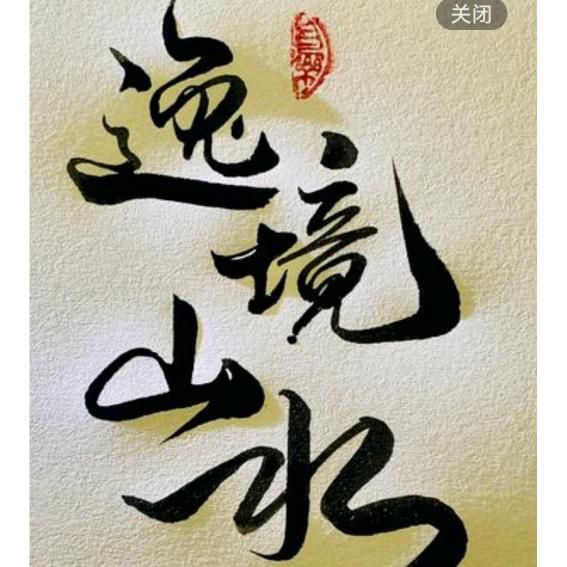 关闭
逸境
山水